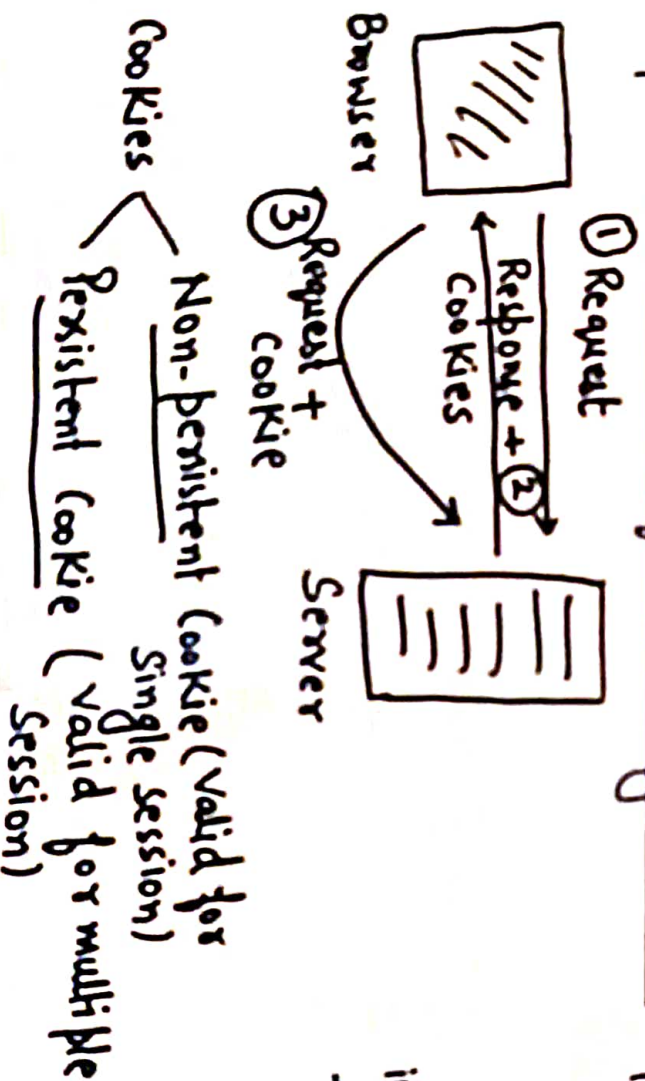 ① Request
Response + ②
Cookies
③ Request +
Cookie
Browser
Server
Cookies
Non-persistent Cookie (Valid for
Single Session)
Persistent Cookie (Valid for multiple
Session)